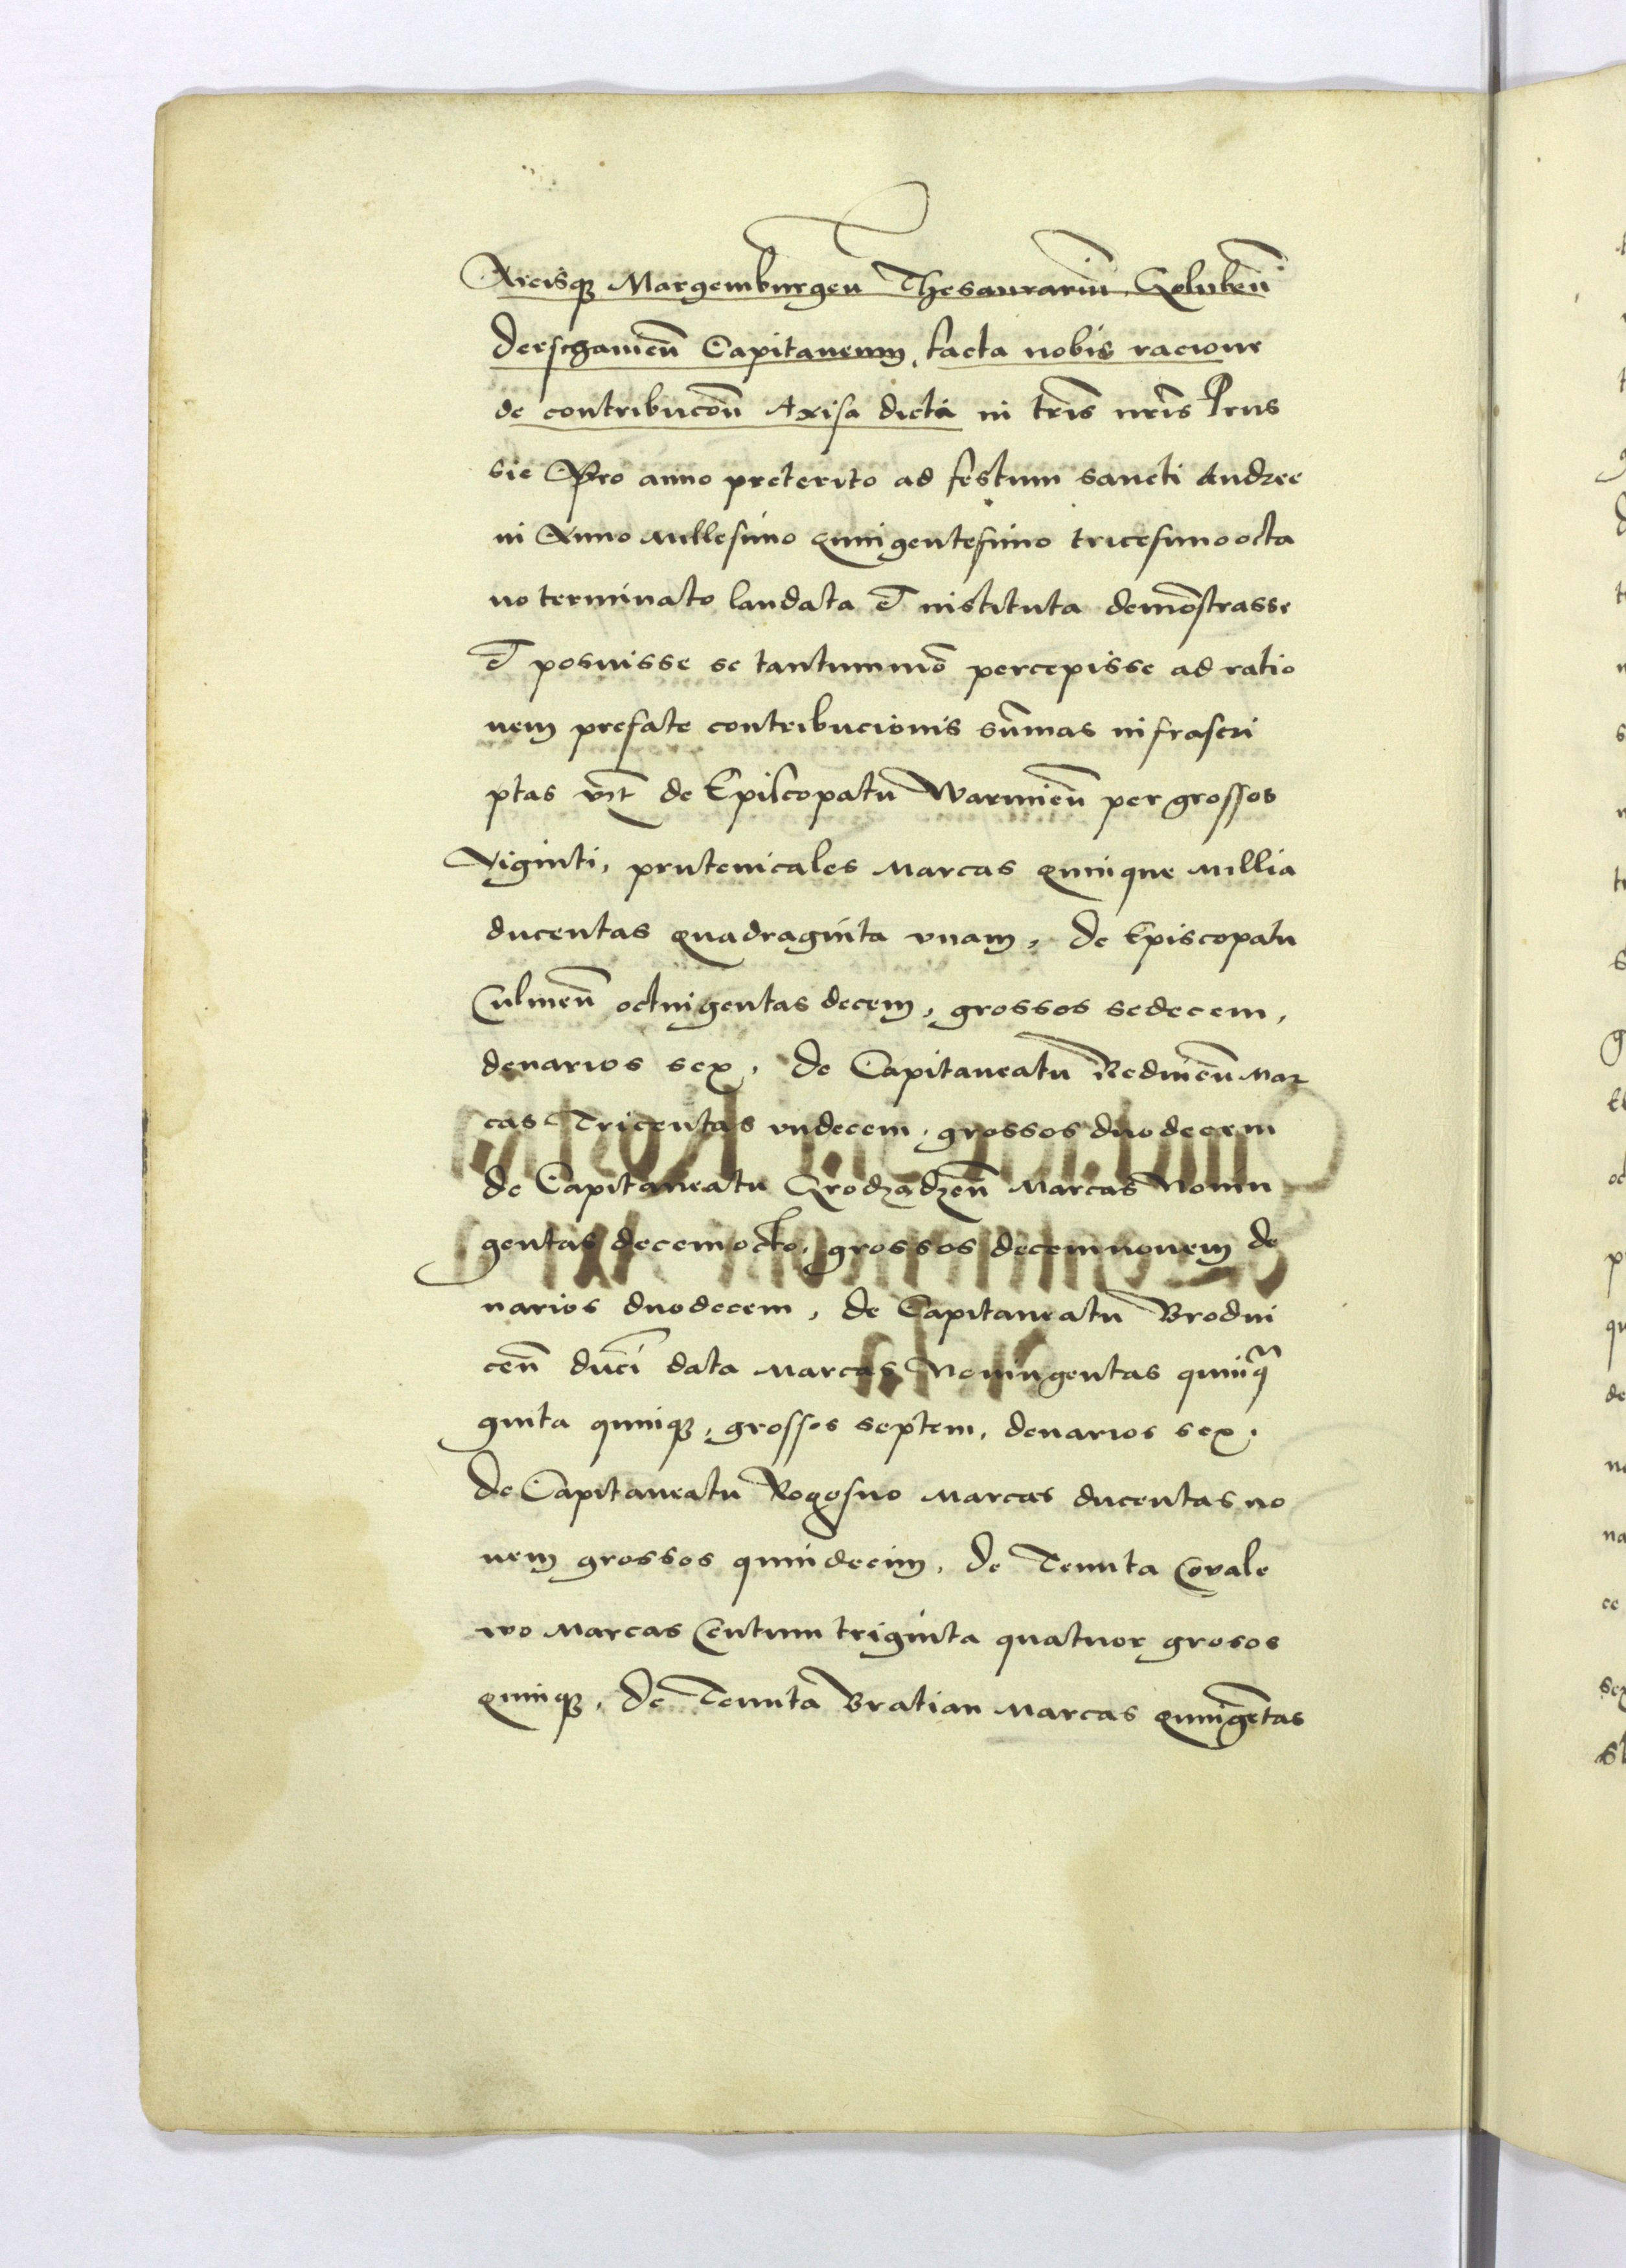 Arcisq Margemburgen Thesaurariu, Golubeñ
Derschaueñ Capitaneum, facta nobis racione
de contribucoñ Axisa dicta in tris nris Prus
sie Pro anno preterito ad festum sancti Andree
in Anno Millesimo quingentesimo tricesimo octa
uo terminato laudata et instituta demostrasse
et posuisse se tantummo percepisse ad ratio
nem prefate contribucionis sumas infrascri
ptas vzt de Episcopatu Warmieñ per grossos
Viginti, prutenicales Marcas quinque Millia
ducentas quadraginta vnam, de Episcopatu
Culmeñ octuigentas decem, grossos sedecem,
denarios sex, de Capitaneatu Redineñ Mar
cas Tricentas vndecem, grossos duodecem
de Capitaneatu Grodzadzeñ Marcas Nonin
gentas decemocto, grossos decemnouem de
narios duodecem, de Capitaneatu Brodni
ceñ duci data Marcas Noningentas quinqua
ginta quinq, grossos septem, denarios sex,
de Capitaneatu Rogosno Marcas ducentas no
uem grossos quindecim, de Tenuta Covale
wo Marcas Centum triginta quatuor grosos
quinq, de Tenuta Bratian Marcas quingetas